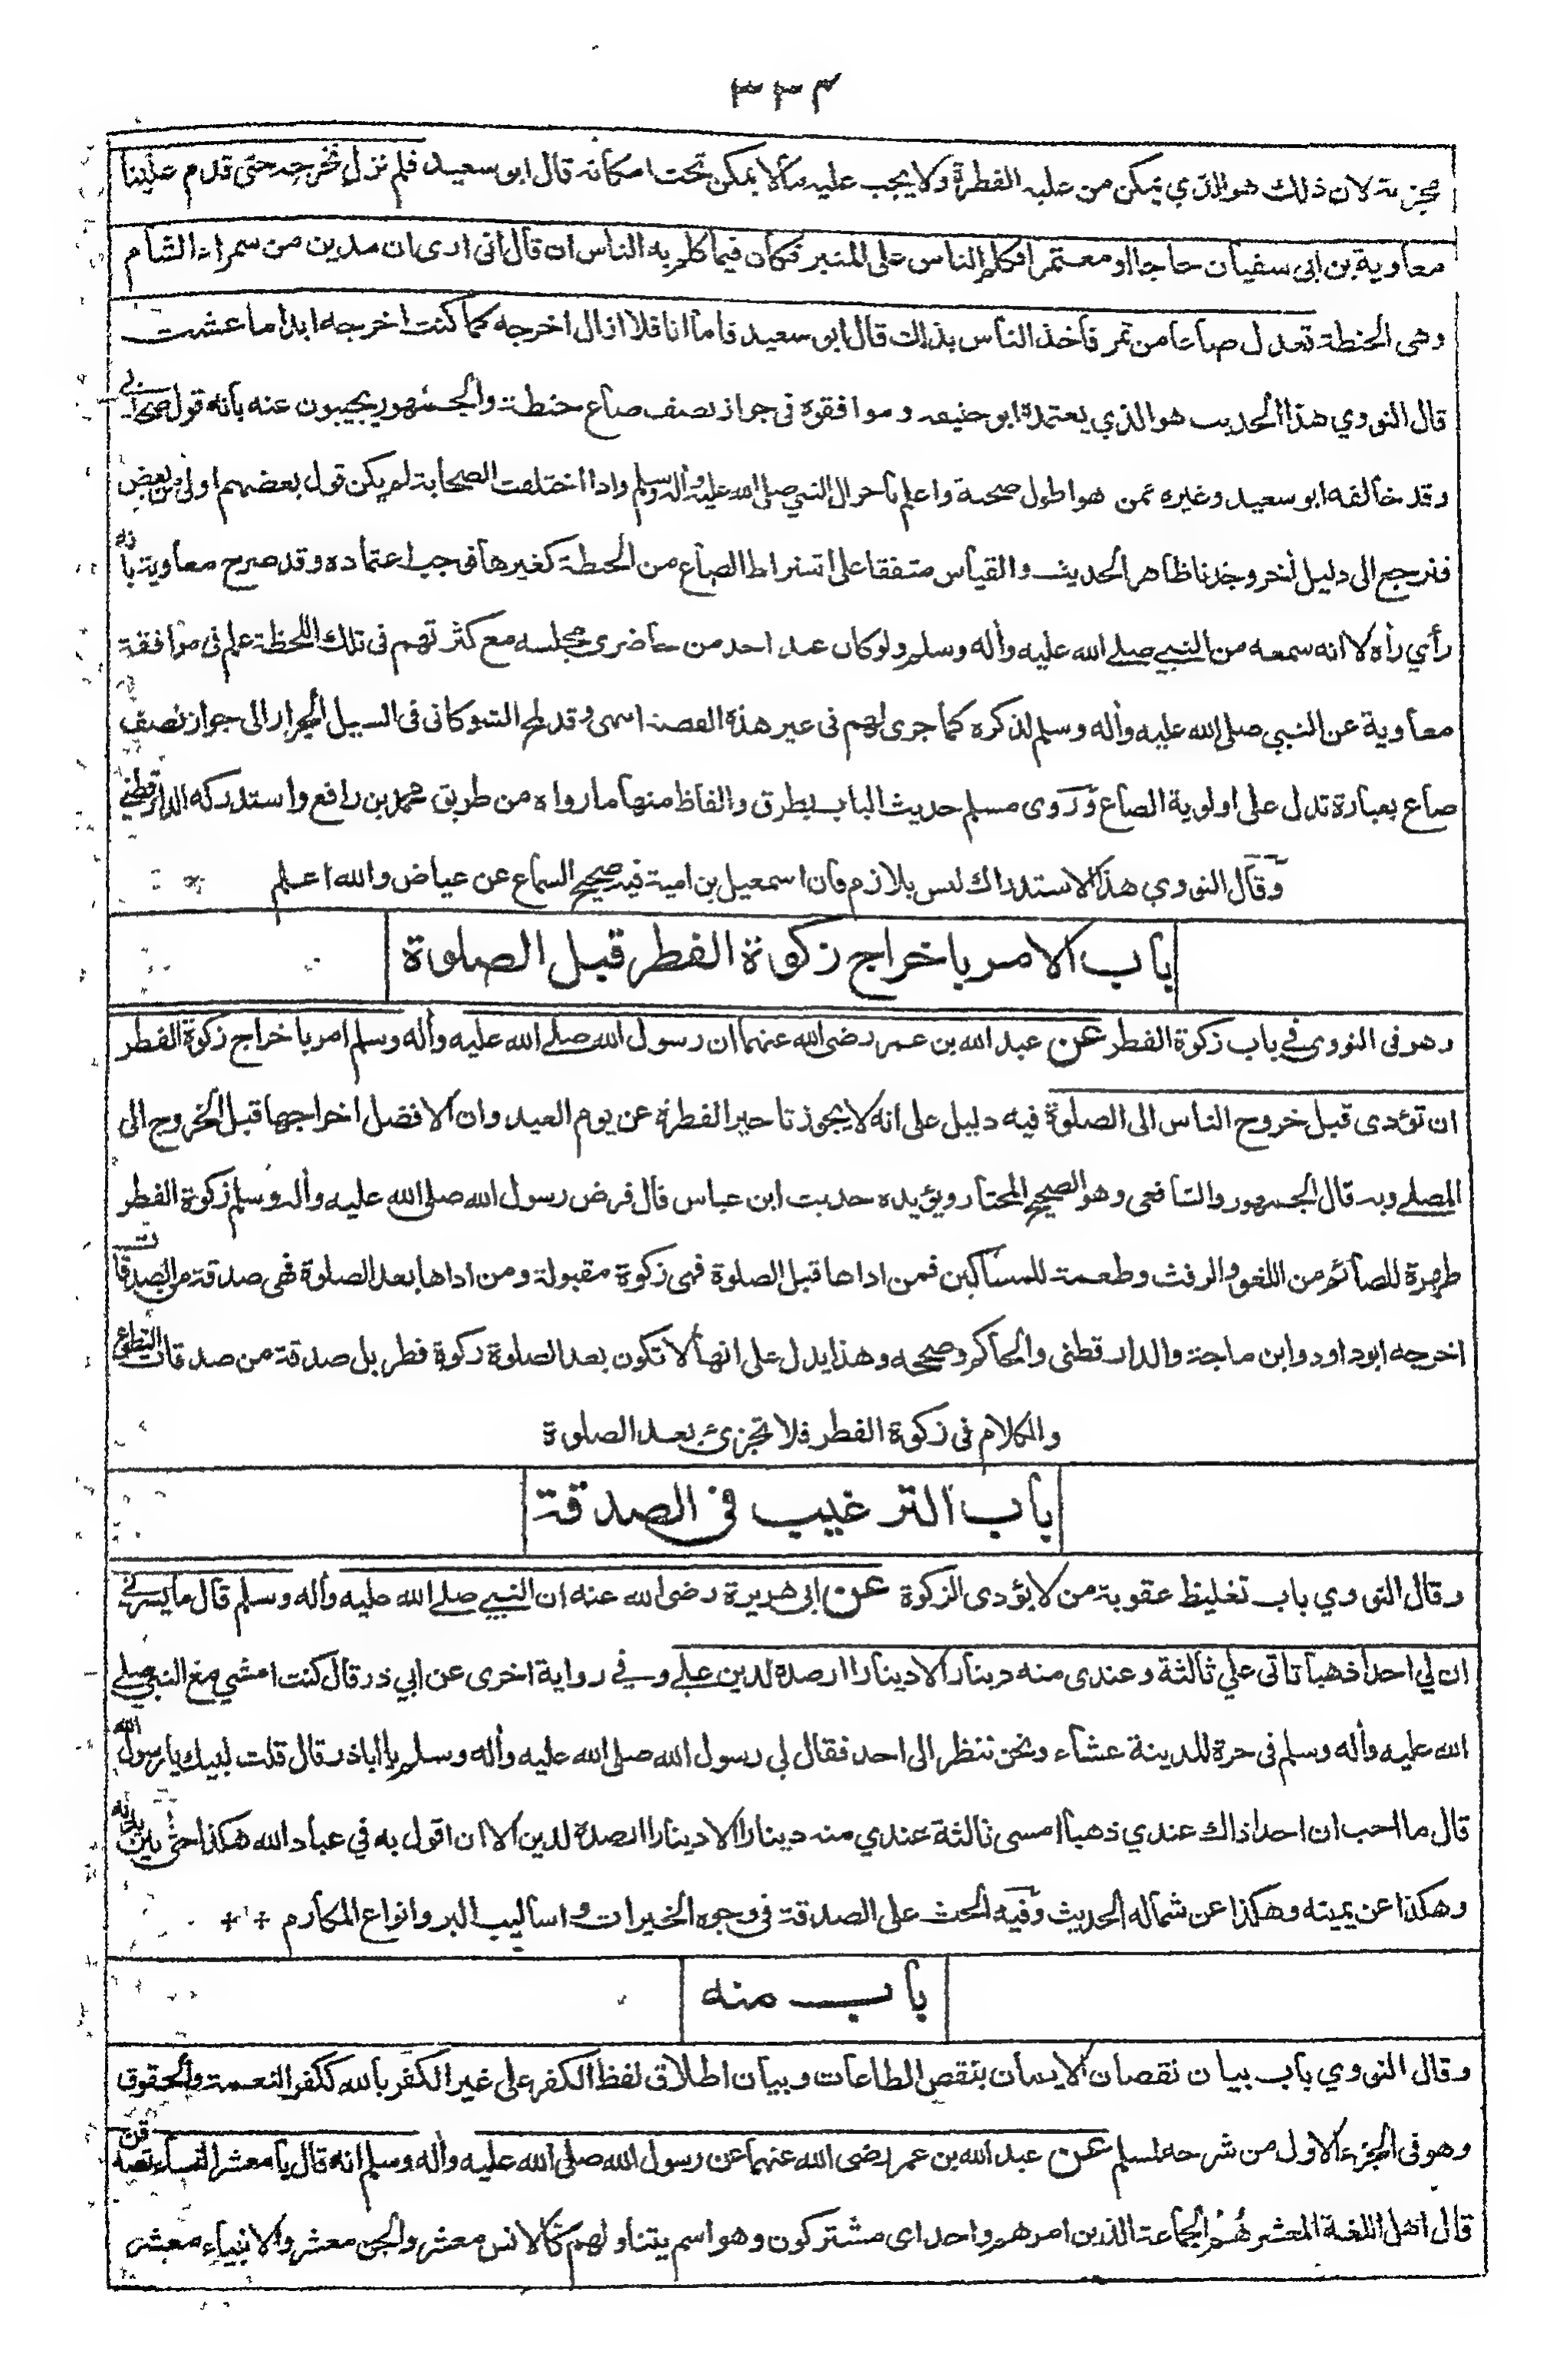 ٣٣٣
مجزية لان ذلك هو الذي يمكن من عليه الفطرة ولا يجب عليه مالا يمكن تحت امكانه قال ابو سعيد فلم نزل نخرجه حتى قدم علينا
معاوية بن ابى سفيان حاجا او معتمرا فكلم الناس على المنبر فكان فيما كلم به الناس ان قال انى ارى ان مدين من سمراء الشام
وهى الحنطة تعدل صاعا من تمر فأخذ الناس بذلك قال ابو سعيد فاما انا فلا ازال اخرجه كما كنت اخرجه ابدا ما عشت
قال النووي هذا الحديث هو الذي يعتمده ابو حنيفه وموافقوه فى جواز نصف صاع حنطة والجمهور يجيبون عنه بأنه قول صحابى
وقد خالفه ابو سعيد وغيره ممن هو اطول صحبة واعلم بأحوال النبي صلى الله عليه وأله وسلم واذا اختلفت الصحابة لم يكن قول بعضهم اولى من بعض
فنرجع الى دليل أخر وجدنا ظاهر الحديث والقياس متفقا على اشتراط الصاع من الحنطة كغيرها فوجب اعتماده وقد صرح معاوية بأنه
رأي رأه لا انه سمعه من النبي صلے الله عليه وأله وسلم ولو كان عند احد من حاضرى مجلسه مع كثرتهم فى تلك اللحظة علم فى موافقة
معاوية عن النبي صلى الله عليه وأله وسلم لذكره كما جرى لهم فى غير هذه القصة انتهى وقد لمح الشوكانى فى السيل الجرار الى جواز نصف
صاع بعبارة تدل على اولوية الصاع وروى مسلم حديث الباب بطرق والفاظ منها ما رواه من طريق محمد بن رافع واستدركه الدارقطنى
وقال النووي هذا الاستدراك ليس بلازم فان اسمعيل بن امية فيه صحيح السماع عن عياض والله اعلم
باب الامر باخراج زكوة الفطر قبل الصلوة
وهو فى النووى فى باب زكوة الفطر عن عبد الله بن عمر رضى الله عنهما ان رسول الله صلے الله عليه وأله وسلم امر باخراج زكوة الفطر
ان تؤدى قبل خروج الناس الى الصلوة فيه دليل على انه لا يجوز تاخير الفطرة عن يوم العيد وان الافضل اخراجها قبل الخروج الى
المصلے وبه قال الجمهور والشافعى وهو الصحيح المختار ويؤيده حديث ابن عباس قال فرض رسول الله صلى الله عليه وأله وسلم زكوة الفطر
طهرة للصائم من اللغو والرفث وطعمة للمساكين فمن اداها قبل الصلوة فهى زكوة مقبولة ومن اداها بعد الصلوة فهى صدقة من الصدقات
اخرجه ابو داود وابن ماجة والدارقطنى والحاكم وصححه وهذا يدل على انها لا تكون بعد الصلوة زكوة فطر بل صدقة من صدقات التطوع
والكلام فى زكوة الفطر فلا تجزئ بعد الصلوة
باب الترغيب فى الصدقة
وقال النووي باب تغليظ عقوبة من لا يؤدى الزكوة عن ابى هريرة رضى الله عنه ان النبي صلے الله عليه وأله وسلم قال ما يسرنى
ان لي احدا ذهبا تاتى علي ثالثة وعندى منه دينار الا دينارا ارصده لدين علے وفي رواية اخرى عن ابي ذر قال كنت امشي مع النبي صلے
الله عليه وأله وسلم فى حرة المدينة عشاء ونحن ننظر الى احد فقال لي رسول الله صلى الله عليه وأله وسلم يا اباذر قال قلت لبيك يا رسول الله
قال ما احب ان احدا ذاك عندي ذهبا امسى ثالثة عندي منه دينار الا دينارا ارصده لدين الا ان اقول به في عباد الله هكذا حثى بين يديه
وهكذا عن يمينه وهكذا عن شماله الحديث وفيه الحث على الصدقة فى وجوه الخيرات واساليب البر وانواع المكارم
باب منه
وقال النووي باب بيان نقصان الايمان بنقص الطاعات وبيان اطلاق لفظ الكفر على غير الكفر بالله ككفر النعمة والحقوق
وهو فى الجزء الاول من شرحه لمسلم عن عبد الله بن عمر رضى الله عنهما عن رسول الله صلى الله عليه وأله وسلم انه قال يا معشر النساء تصدقن
قال اهل اللغة المعشر هم الجماعة الذين امرهم واحد اى مشتركون وهو اسم يتناولهم كالانس معشر والجن معشر والانبياء معشر